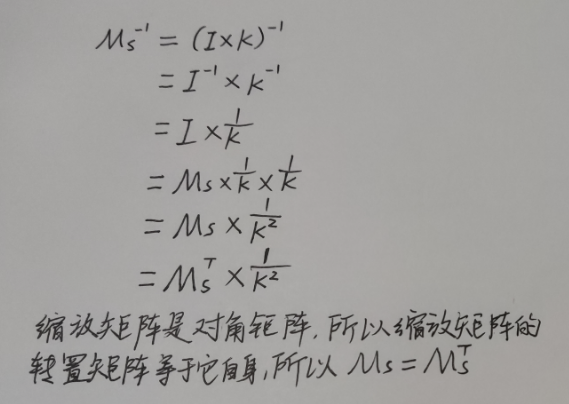 Ms⁻¹ = (I×K)⁻¹
= I⁻¹ × K⁻¹
= I × 1/K
= Ms × 1/K × 1/K
= Ms × 1/K²
= Msᵀ × 1/K²
缩放矩阵是对角钜阵,所以缩放矩阵的
转置矩阵等于它自身,所以 Ms = Msᵀ